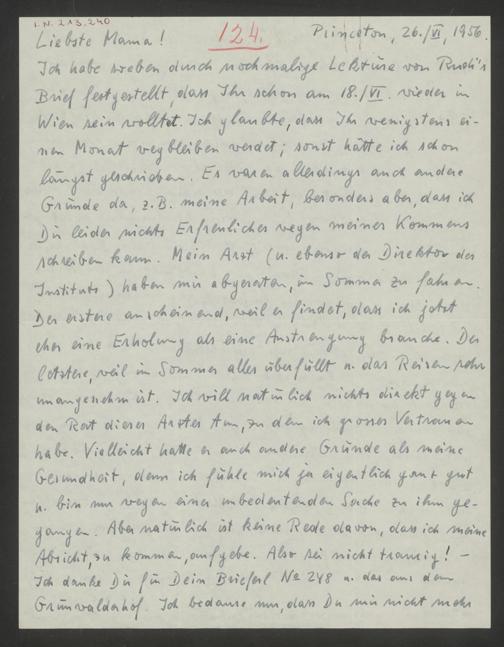 I.N. 213.240
124.
Princeton, 26./VI. 1956.
Liebste Mama!
Ich habe soeben durch nochmalige Lektüre von Rudi's
Brief festgestellt, dass Ihr schon am 18./VI. wieder in
Wien sein wolltet. Ich glaubte, dass Ihr wenigstens ei-
nen Monat wegbleiben werdet; sonst hätte ich schon
längst geschrieben. Es waren allerdings auch andere
Gründe da, z.B. meine Arbeit, besonders aber, dass ich
Dir leider nichts Erfreuliches wegen meines Kommens
schreiben kann. Mein Arzt (u. ebenso der Direktor des
Instituts) haben mir abgeraten, im Sommer zu fahren.
Der erstere anscheinend, weil er findet, dass ich jetzt
eher eine Erholung als eine Anstrengung brauche. Der
letztere, weil im Sommer alles überfüllt u. das Reisen sehr
unangenehm ist. Ich will natürlich nichts direkt gegen
den Rat dieses Arztes tun, zu dem ich grosses Vertrauen
habe. Vielleicht hatte er auch andere Gründe als meine
Gesundheit, denn ich fühle mich ja eigentlich ganz gut
u. bin nur wegen einer unbedeutenden Sache zu ihm ge-
gangen. Aber natürlich ist keine Rede davon, dass ich meine
Absicht, zu kommen, aufgebe. Also sei nicht traurig! –
Ich danke Dir für Dein Brieferl No 248 u. das aus dem
Grünwalderhof. Ich bedaure nur, dass Du mir nicht mehr